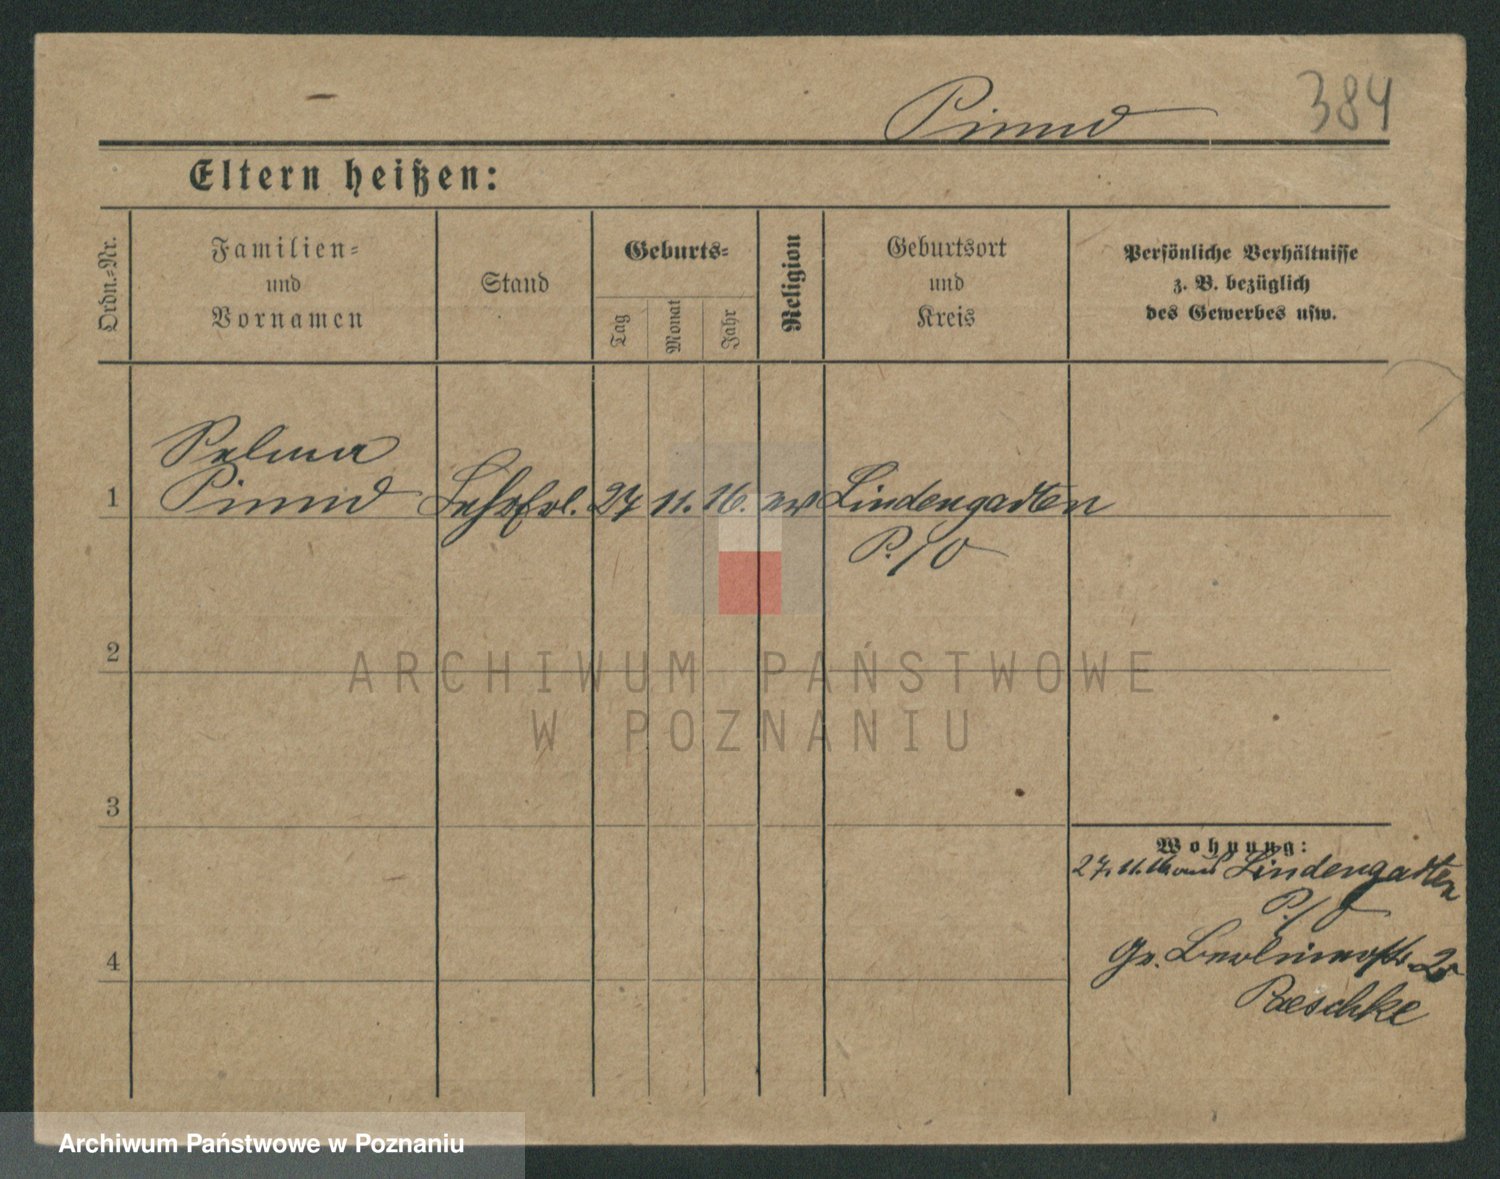 Pinnd
384
Eltern heißen:
Ordn.-Nr.
Familien=
und
Vornamen
Stand
Geburts=
Tag
Monat
Jahr
Religion
Geburtsort
und
Kreis
Persönliche Verhältnisse
z. B. bezüglich
des Gewerbes usw.
Selma
1 Pinnd 27 11. 16. ev Lindengarten
P./O
2
ARCHIWUM PAŃSTWOWE
W POZNANIU
3
Wohnung:
27. 11. 16 aus Lindengarten
P./O
4
Gr. Berlinerstr. 25
Raeschke
Archiwum Państwowe w Poznaniu